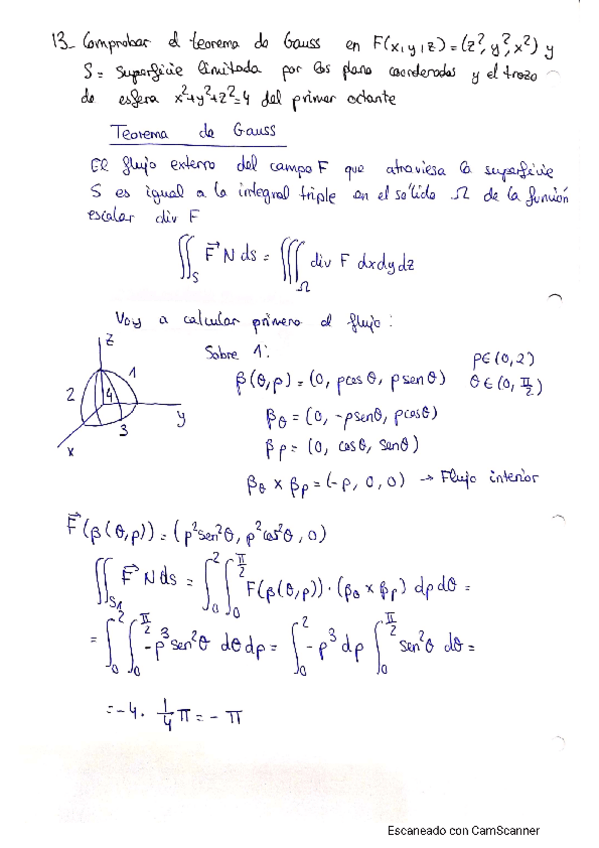 13_ Comprobar el teorema de Gauss en F(x,y,z)=(z²,y²,x²) y
S = superficie limitada por los plano coordenados y el trozo
de esfera x²+y²+z²=4 del primer octante
Teorema de Gauss
El flujo externo del campo F que atraviesa la superficie
S es igual a la integral triple en el sólido Ω de la función
escalar div F
∬_S F⃗ N ds = ∭_Ω div F dxdydz
Voy a calcular primero el flujo:
z
Sobre 1:
ρ∈(0,2)
1
2
4
3
y
x
β(θ,ρ) = (0, ρcosθ, ρsenθ) θ∈(0, π/2)
βθ = (0, -ρsenθ, ρcosθ)
βρ = (0, cosθ, senθ)
βθ × βρ = (-ρ, 0, 0) → Flujo interior
F⃗(β(θ,ρ)) = (ρ²sen²θ, ρ²cos²θ, 0)
∬_S1 F⃗ N ds = ∫_0^2 ∫_0^{π/2} F(β(θ,ρ)) · (βθ × βρ) dρdθ =
= ∫_0^2 ∫_0^{π/2} -ρ³sen²θ dθdρ = ∫_0^2 -ρ³ dρ ∫_0^{π/2} sen²θ dθ =
= -4 · 1/4 π = - π
Escaneado con CamScanner